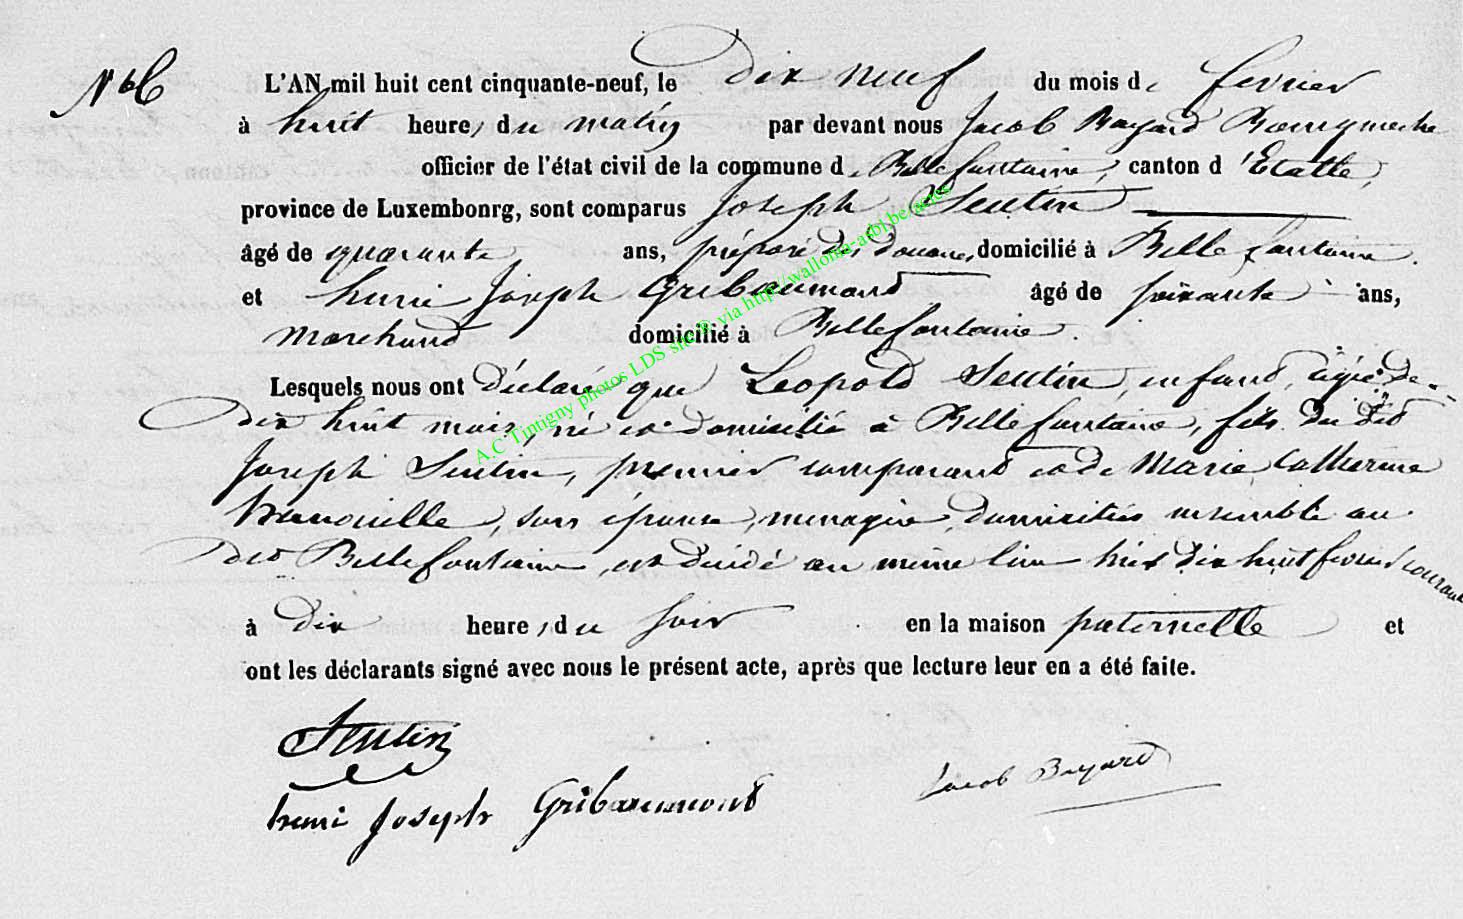 N° 6
L'AN mil huit cent cinquante-neuf, le dix neuf du mois de fevrier
à huit heures du matin par devant nous Jacob Bayard Bourgmestre
officier de l'état civil de la commune de Bellefontaine, canton d'Etalle,
province de Luxembonrg, sont comparus Joseph Sentin
âgé de quarante ans, préposé des douanes, domicilié à Bellefontaine.
et henri Joseph Gribaumont âgé de soixante ans,
marchand domicilié à Bellefontaine.
Lesquels nous ont Déclaré que Leopold Sentin, enfant, agé de
dix huit mois, né et domicilié à Bellefontaine, fils du dit
Joseph Sentin, premier comparant et de Marie Catherine
son épouse, menagère, domiciliés ensemble au
dit Bellefontaine, est décédé au même lieu hier dix huit fevrier courant
à dix heures du soir en la maison paternelle et
ont les déclarants signé avec nous le présent acte, après que lecture leur en a été faite.
Sentin
henri Joseph Gribaumont
Jacob Bayard
A.C Tintigny photos LDS site ® via http://wallonia-asbl.be/actes